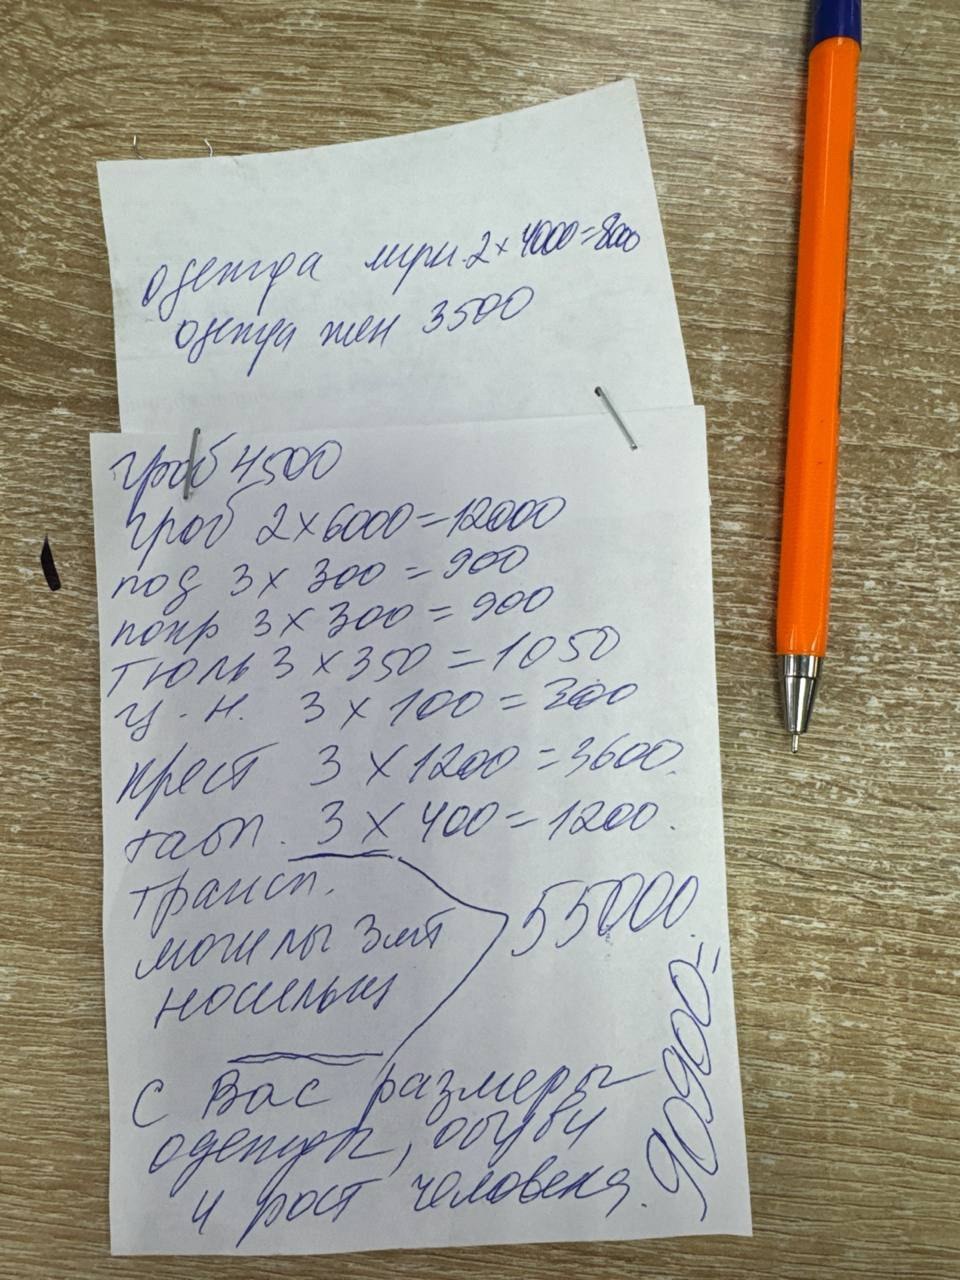 одежда муж. 2 х 4000 = 8000
одежда жен 3500
гроб 4500
гроб 2 х 6000 = 12000
под 3 х 300 = 900
покр 3 х 300 = 900
тюль 3 х 350 = 1050
ц. н. 3 х 100 = 300
крест 3 х 1200 = 3600.
табл. 3 х 400 = 1200.
трансп.
могилы 3 шт
носильщ
55000.
90900=
с Вас размеры
одежды, обуви
и рост человека.